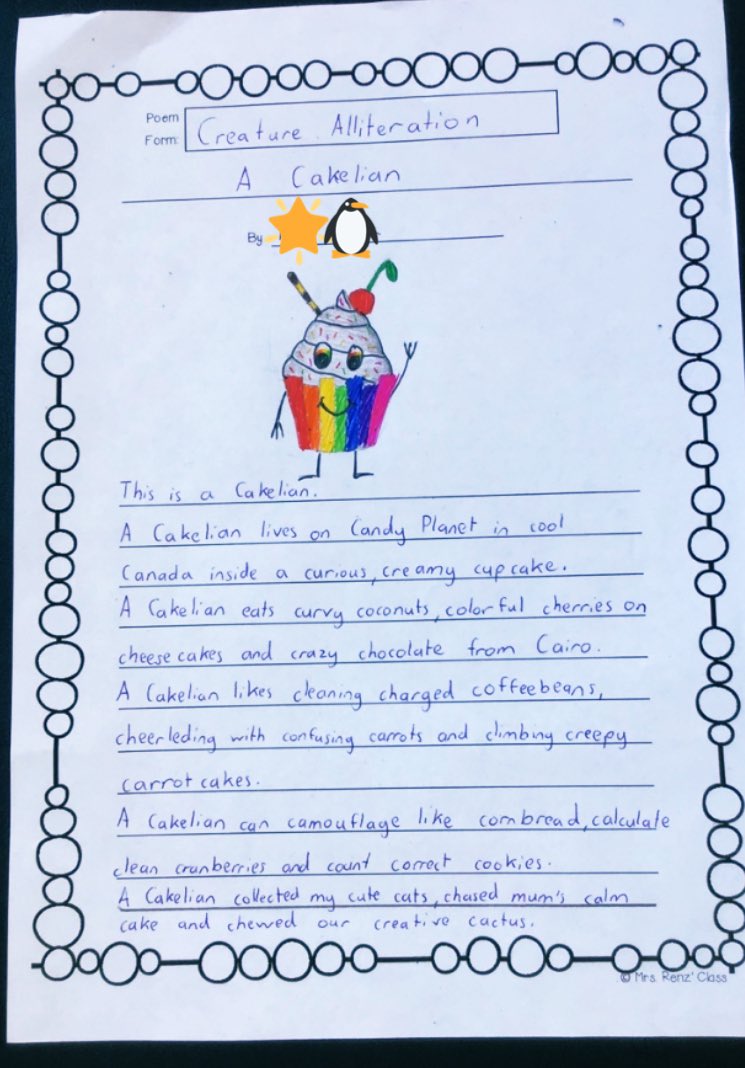 Poem
Form:
Creature Alliteration
A Cakelian
By
This is a Cakelian.
A Cakelian lives on Candy Planet in cool
Canada inside a curious, creamy cupcake.
A Cakelian eats curvy coconuts, colorful cherries on
cheese cakes and crazy chocolate from Cairo.
A Cakelian likes cleaning charged coffeebeans,
cheerleding with confusing carrots and climbing creepy
carrot cakes.
A Cakelian can camouflage like cornbread, calculate
clean cranberries and count correct cookies.
A Cakelian collected my cute cats, chased mum's calm
cake and chewed our creative cactus.
© Mrs. Renz' Class